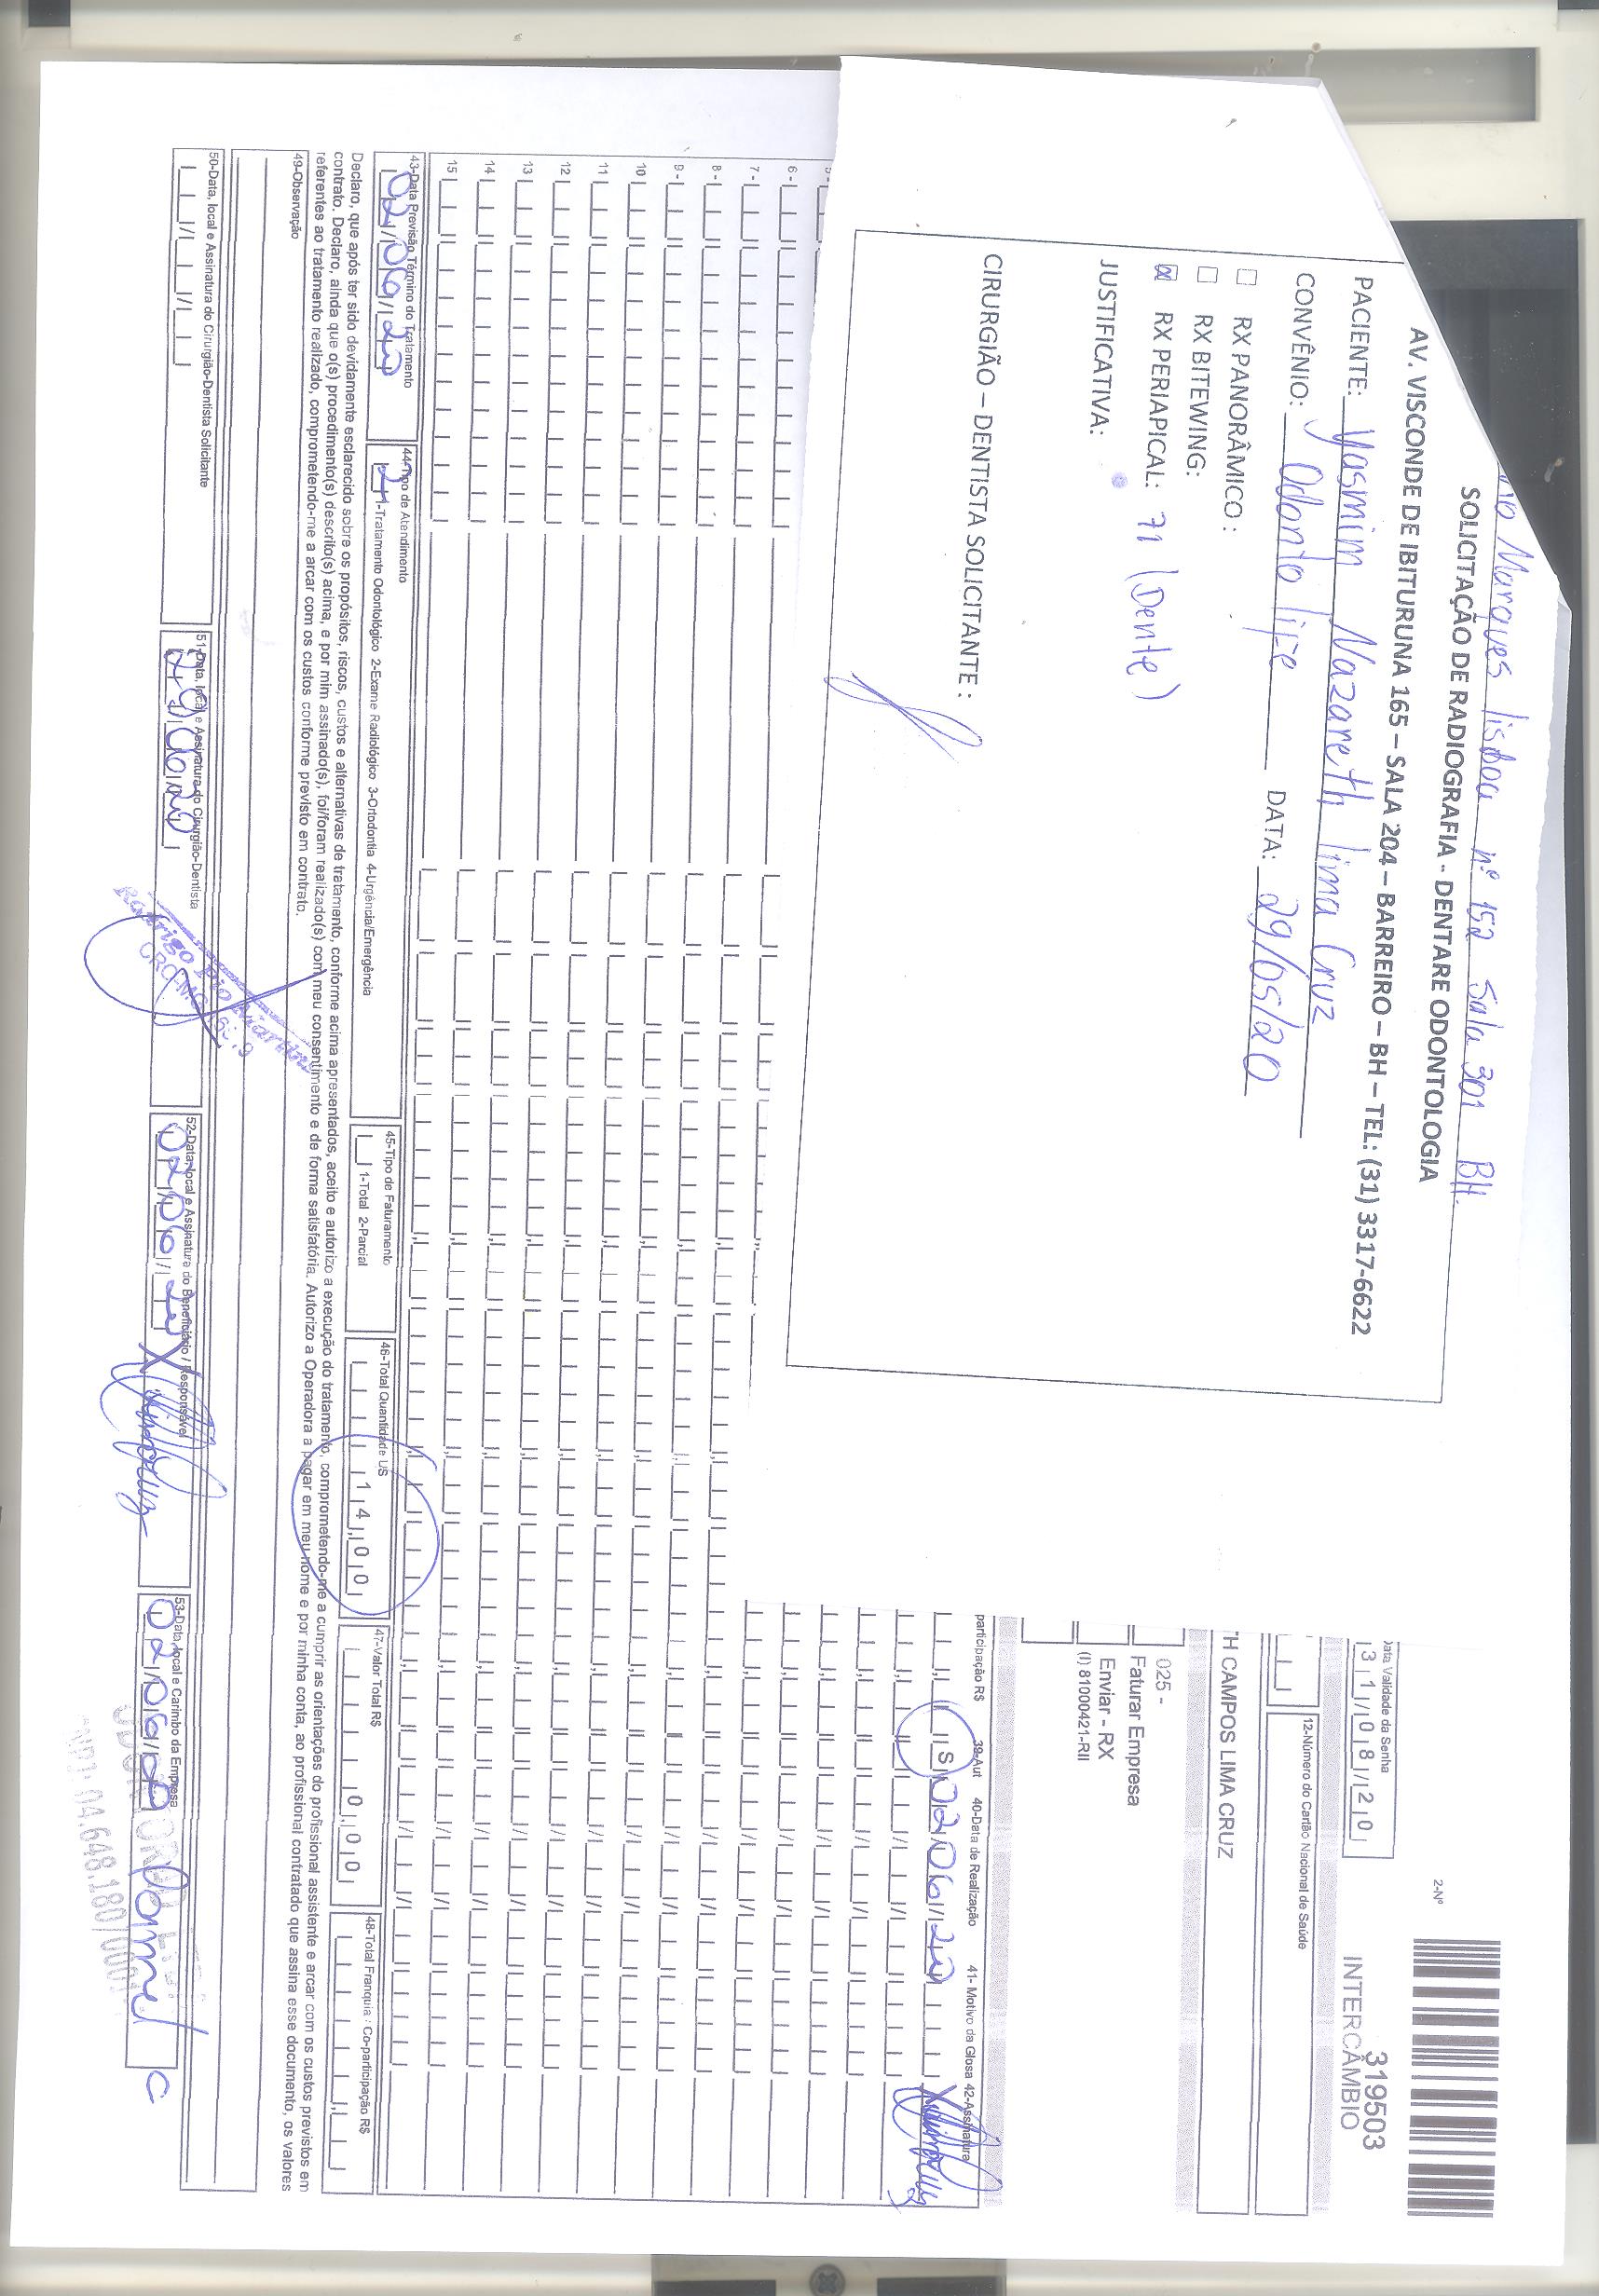 Marques lisboa nº 152 Sala 301 BH.
SOLICITAÇÃO DE RADIOGRAFIA - DENTARE ODONTOLOGIA
AV. VISCONDE DE IBITURUNA 165 – SALA 204 – BARREIRO – BH – TEL: (31) 3317-6622
PACIENTE: Yasmim Nazareth lima Cruz
CONVÊNIO: Odonto life DATA: 29/05/20
RX PANORÂMICO :
RX BITEWING:
RX PERIAPICAL: 71 (Dente)
JUSTIFICATIVA:
CIRURGIÃO – DENTISTA SOLICITANTE :
2-Nº
319503
INTERCÂMBIO
Data Validade da Senha
31/08/20
12-Número do Cartão Nacional de Saúde
TH CAMPOS LIMA CRUZ
025 -
Faturar Empresa
Enviar - RX
(I) 81000421-RII
participação R$ 39-Aut 40-Data de Realização 41- Motivo da Glosa 42-Assinatura
S 02/06/20
6 -
7 -
8 -
9 -
10
11
12
13
14
15
43-Data Previsão Término do Tratamento
02/06/20
44-Tipo de Atendimento
2 1-Tratamento Odontológico 2-Exame Radiológico 3-Ortodontia 4-Urgência/Emergência
45-Tipo de Faturamento
1-Total 2-Parcial
46-Total Quantidade US
14,00
47-Valor Total R$
0,00
48-Total Franquia / Co-participação R$
Declaro, que após ter sido devidamente esclarecido sobre os propósitos, riscos, custos e alternativas de tratamento, conforme acima apresentados, aceito e autorizo a execução do tratamento, comprometendo-me a cumprir as orientações do profissional assistente e arcar com os custos previstos em
contrato. Declaro, ainda que o(s) procedimento(s) descrito(s) acima, e por mim assinado(s), foi/foram realizado(s) com meu consentimento e de forma satisfatória. Autorizo a Operadora a pagar em meu nome e por minha conta, ao profissional contratado que assina esse documento, os valores
referentes ao tratamento realizado, comprometendo-me a arcar com os custos conforme previsto em contrato.
49-Observação
50-Data, local e Assinatura do Cirurgião-Dentista Solicitante
51-Data, local e Assinatura do Cirurgião-Dentista
52-Data, local e Assinatura do Beneficiário / Responsável
02/06/20
53-Data, local e Carimbo da Empresa
02/06/20
Rodrigo Pio Martins